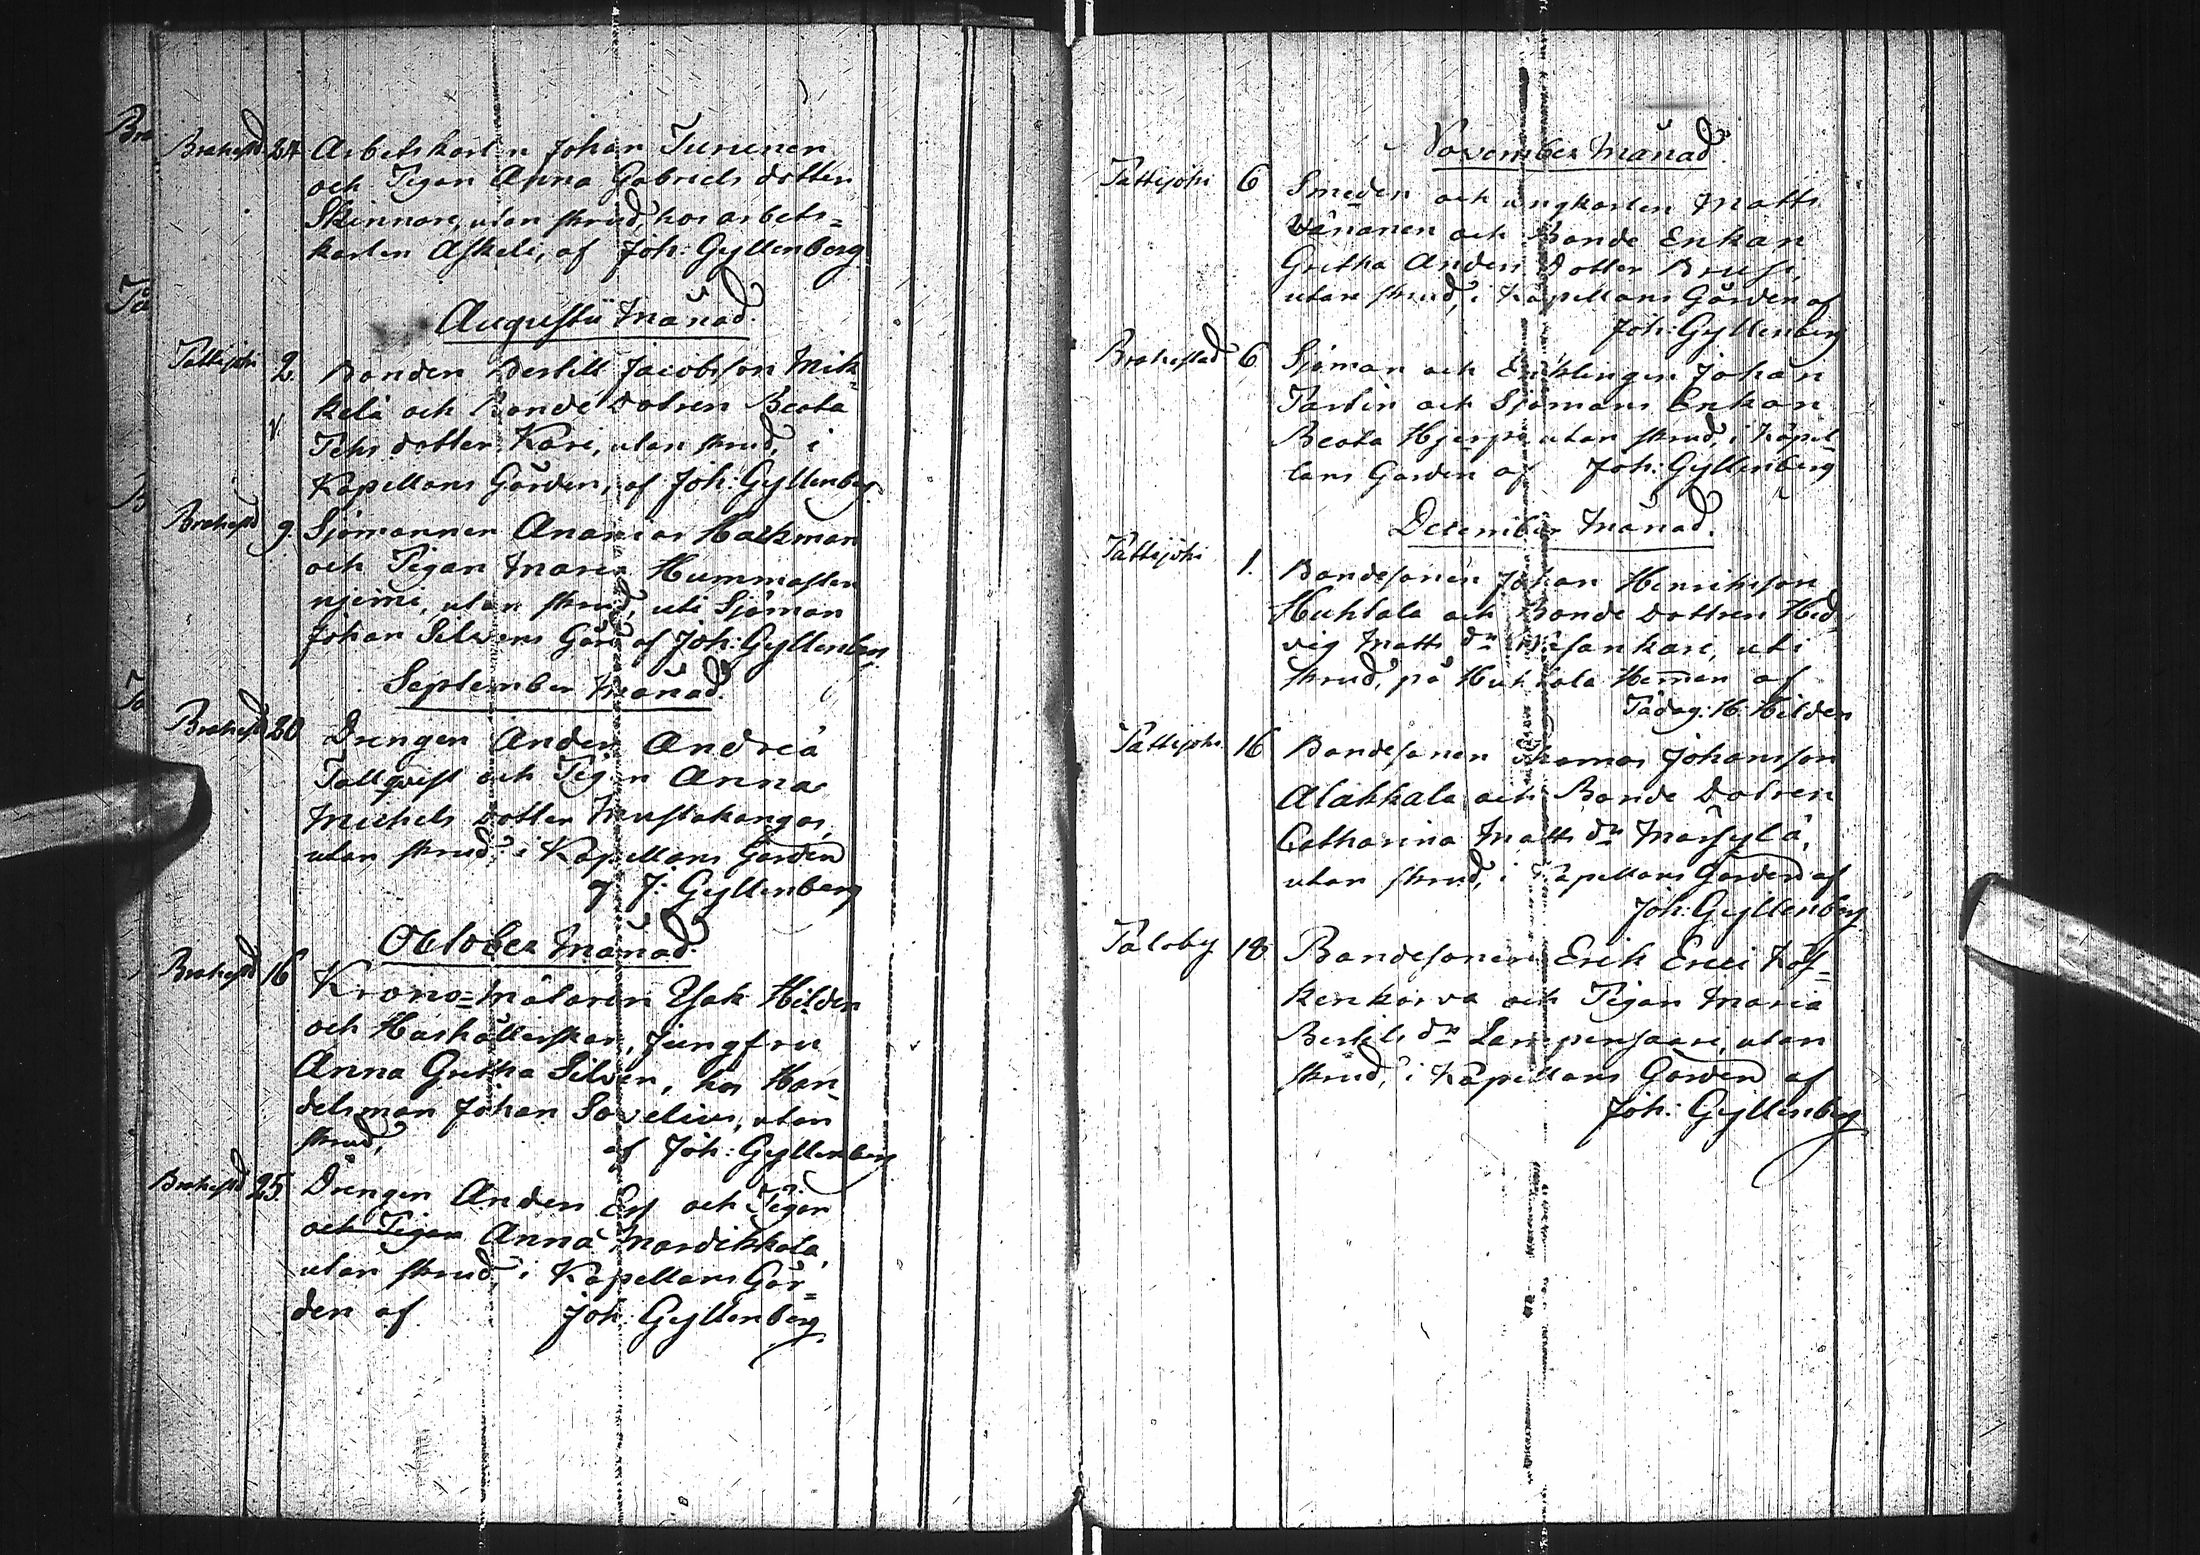 Brahestd 24 Arbetskarlen Johan Turunen
och Pigan Anna Gabriels dotter
Skinnare, utan skrud, hos arbets=
karlen Askeli, af Joh: Gyllenberg
Augustii Månad.
Pattijoki 2. Bonden Bertill Jacobsson Mik-
kelä och Bonde Dotren Beata
Pehrs dotter Kari, utan skrud, i
Kapellans Gården, af Joh: Gyllenberg
Brahestd 9. Sjömannen Ananias Hackman
och Pigan Maria Hummasten
njemi, utan skrud, uti Sjöman
Johan Silvens Gård af Joh: Gyllenberg
September Månad.
Brahestd 20 Drengen Anders Andreä
Tallqvist och Pigan Anna
Michels dotter Mustakangas,
utan skrud, i Kapellans Gården
af J: Gyllenberg
October Månad.
Brahestd 16 Krono=Målaren Isak Hilden
och Hushållerskan, Jungfru
Anna Gretha Silvén, hos Han-
delsman Johan Sovelius, utan
skrud, af Joh: Gyllenberg
Brahestd 25. Drengen Anders Ers och Pigan
och Pigan Anna Mardikkala,
utan skrud, i Kapellans Går=
den af Joh: Gyllenberg
November Månad.
Pattijoki 6 Smeden och ungkarlen Matts
Wänänen och Bonde Enkan
Gretha Anders Dotter Brusi,
utan skrud, i Kapellans Gården af
Joh: Gyllenberg
Brahestad 6 Sjöman och Enklingen Johan
Parlin och Sjömans Enkan
Beata Hjerpe utan skrud, i Kapel
lans Gården af Joh: Gyllenberg
December Månad.
Pattijoki 1. Bondesonen Johan Henriksson
Huhtala och Bonde Dottren Hed
vig Matts dr Wesankari, uti
skrud, på Huhtala Heman af
Pädag: H. Hilden
Pattijoki 16 Bondesonen Thomas Johansson
Alakkala och Bonde Dotren
Catharina Matts dr Marsylä,
utan skrud, i Kapellans Gården af
Joh: Gyllenberg
Saloby 18 Bondesonen Erik Erici Kos=
kenkorva och Pigan Maria
Bertils dr Lampensaari, utan
skrud, i Kapellans Gården af
Joh: Gyllenberg